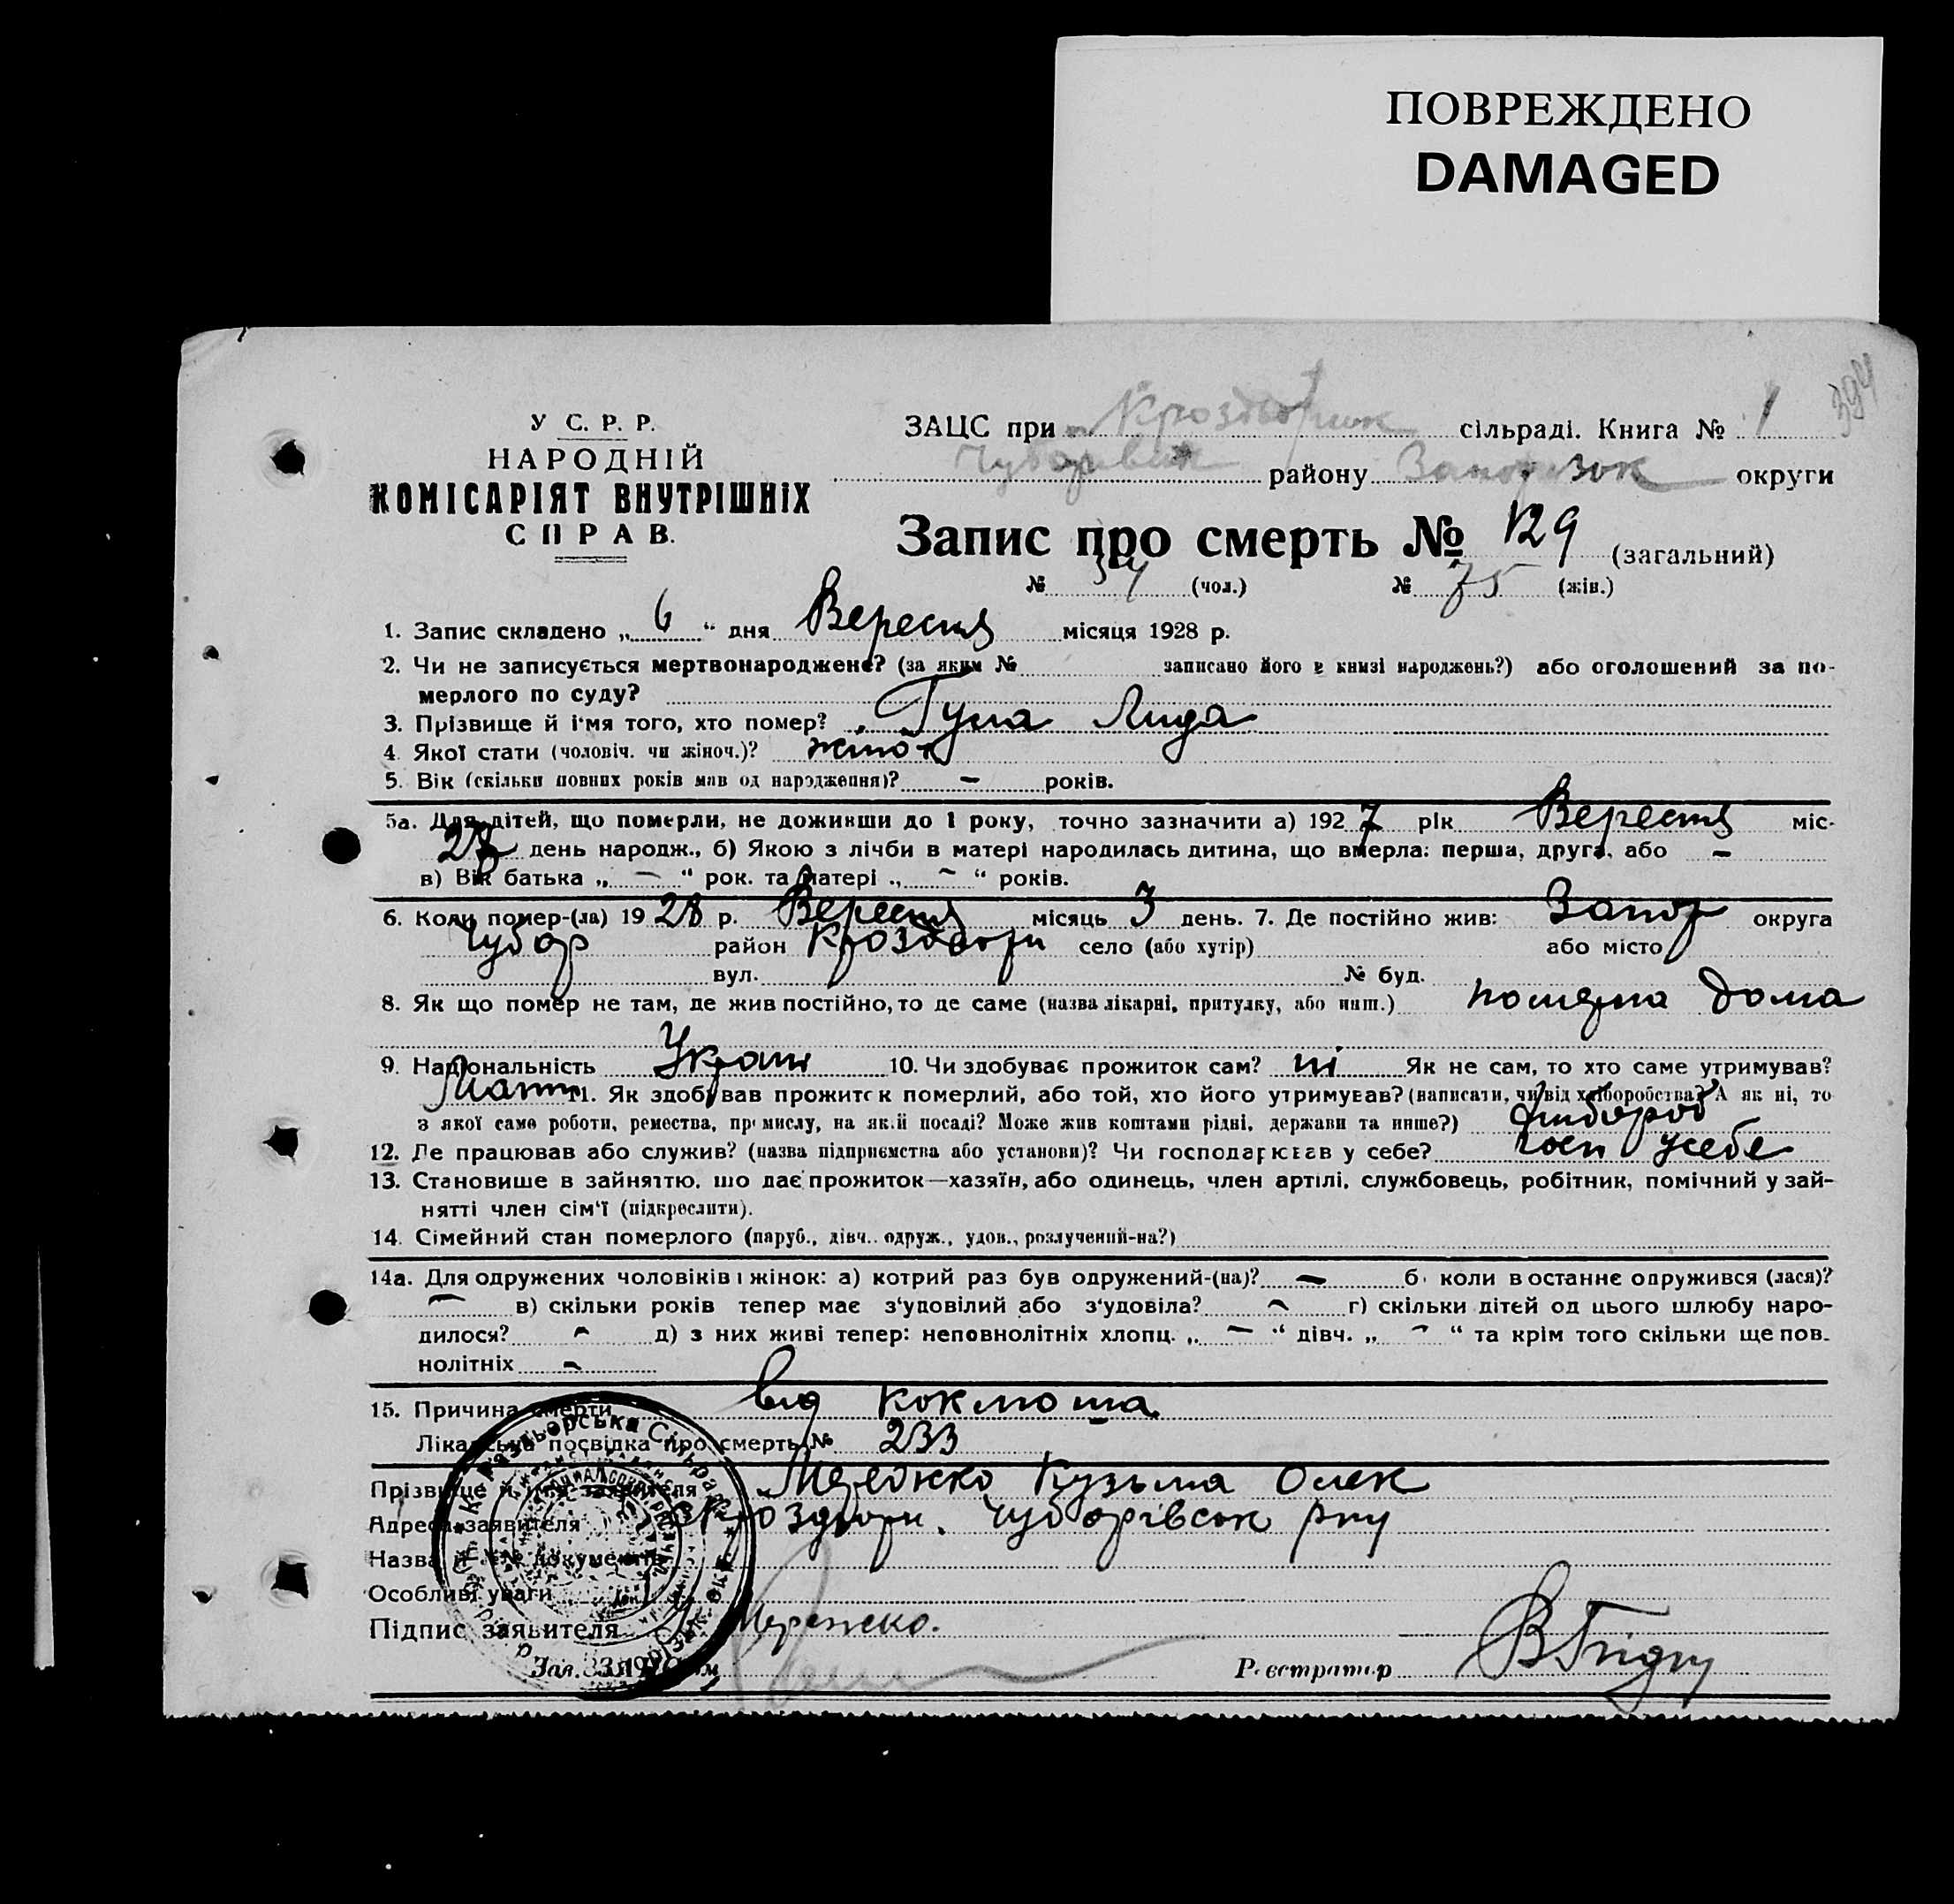 ПОВРЕЖДЕНО
DAMAGED
394
У С. Р. Р.
НАРОДНІЙ
КОМІСАРІЯТ ВНУТРІШНІХ
СПРАВ.
ЗАЦС при Кроздворськ сільраді. Книга № 1
Чубарівськ району Запорізок округи
Запис про смерть № 129 (загальний)
№ 54 (чол.) № 75 (жін.)
1. Запис складено „ 6 “ дня Вересня місяця 1928 р.
2. Чи не записується мертвонароджене? (за яким № записано його в книзі народжень?) або оголошений за по-
мерлого по суду?
3. Прізвище й ім‘я того, хто помер? Гула Лида
4. Якої стати (чоловіч. чи жіноч.)? жінок
5. Вік (скільки повних років мав од народження)? — років.
5а. Для дітей, що померли, не доживши до 1 року, точно зазначити а) 1927 рік Вересня міс-
23 день народж., б) Якою з лічби в матері народилась дитина, що вмерла: перша, друга, або —
в) Вік батька „ — “ рок. та матері „ — “ років.
6. Коли помер-(ла) 1928 р. Вересня місяць 3 день. 7. Де постійно жив: Запор округа
Чубар район Кроздвори село (або хутір) або місто
вул. № буд.
8. Як що помер не там, де жив постійно, то де саме (назва лікарні, притулку, або инш.) померла дома
9. Національність Украін 10. Чи здобуває прожиток сам? ні Як не сам, то хто саме утримував?
Мати 11. Як здобував прожиток померлий, або той, хто його утримував? (написати, чи від хліборобства? А як ні, то
з якої само роботи, ремества, промислу, на якій посаді? Може жив коштами рідні, держави та инше?) хлібороб
12. Де працював або служив? (назва підприємства або установи)? Чи господарював у себе? госп у себе
13. Становище в зайняттю, що дає прожиток—хазяїн, або одинець, член артілі, службовець, робітник, помічний у зай-
нятті член сім‘ї (підкреслити).
14. Сімейний стан померлого (паруб., дівч.. одруж., удов., розлучений-на?)
14а. Для одружених чоловіків і жінок: а) котрий раз був одружений-(на)? — б) коли в останнє одружився (лася)?
— в) скільки років тепер має з‘удовілий або з‘удовіла? — г) скільки дітей од цього шлюбу наро-
дилося? — д) з них живі тепер: неповнолітніх хлопц. „ — “ дівч. „ — “ та крім того скільки ще пов-
нолітніх —
15. Причина смерти від коклюша
Лікарська посвідка про смерть № 233
Прізвище й імя заявителя Мережко Кузьма Олек
Адреса заявителя С Кроздвори. Чубарівськ рну
Назва й №№ документів
Особливі уваги
Підпис заявителя Мережко.
Зав. ЗАЦС'ом Реєстратор